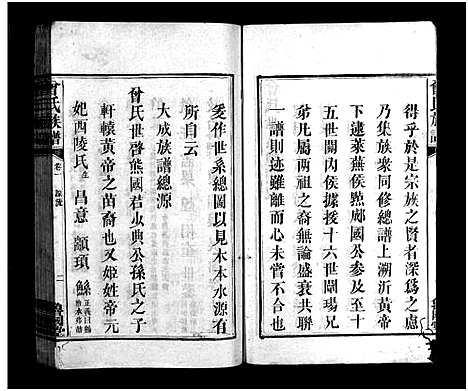 得乎於是宗族之賢者深為之慮
乃集族衆同修總譜上溯沂黃帝
下逮萊蕪侯㷼郕國公參及十
五世關內侯據十六世闡瑒兄
弟凡屬兩祖之裔無論盛衰共聯
一譜則迹雖離而心未嘗不合也
爰作世系總圖以見木本水源有
所自云
大成族譜總源
曾氏世啓熊國君少典公孫氏之子
軒轅黃帝之苗裔也又姬姓黃帝元
妃西陵氏生昌意 顓頊 鯀
曾氏族譜
卷一
源流